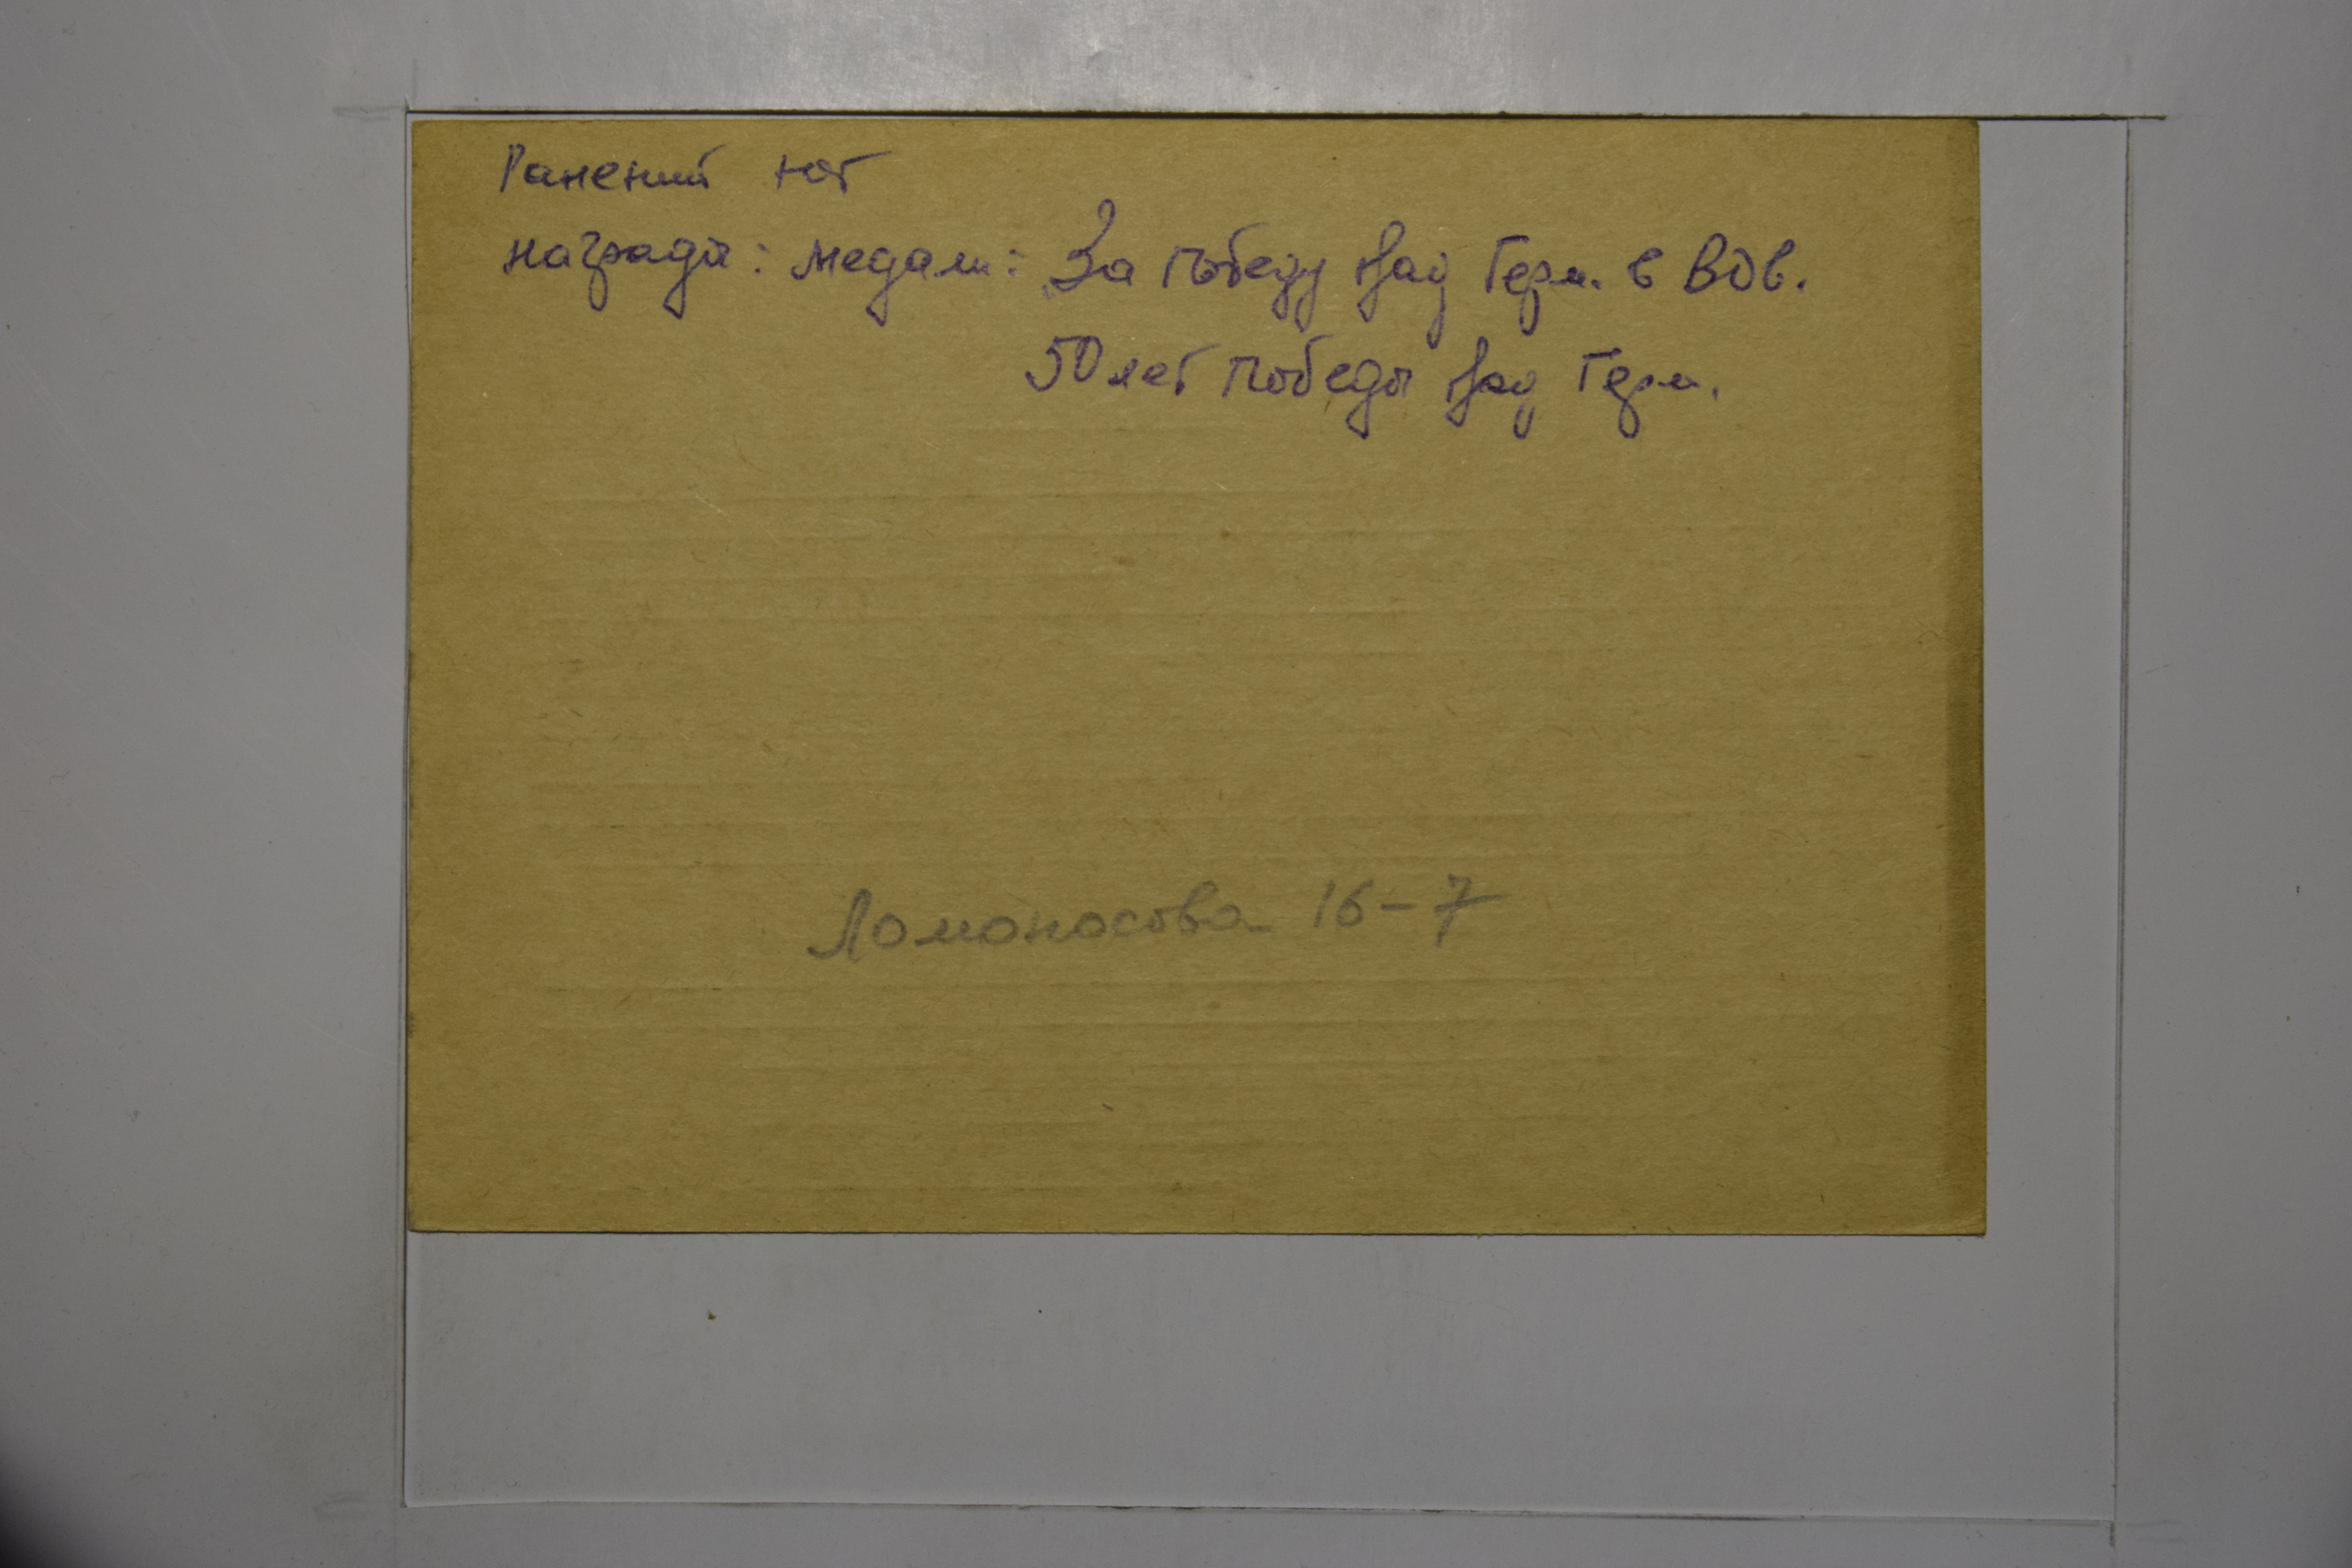 Ранений нет
награды: медали: За победу над Герм. в ВОв.
50 лет победы над Герм.
Ломоносова 16-7